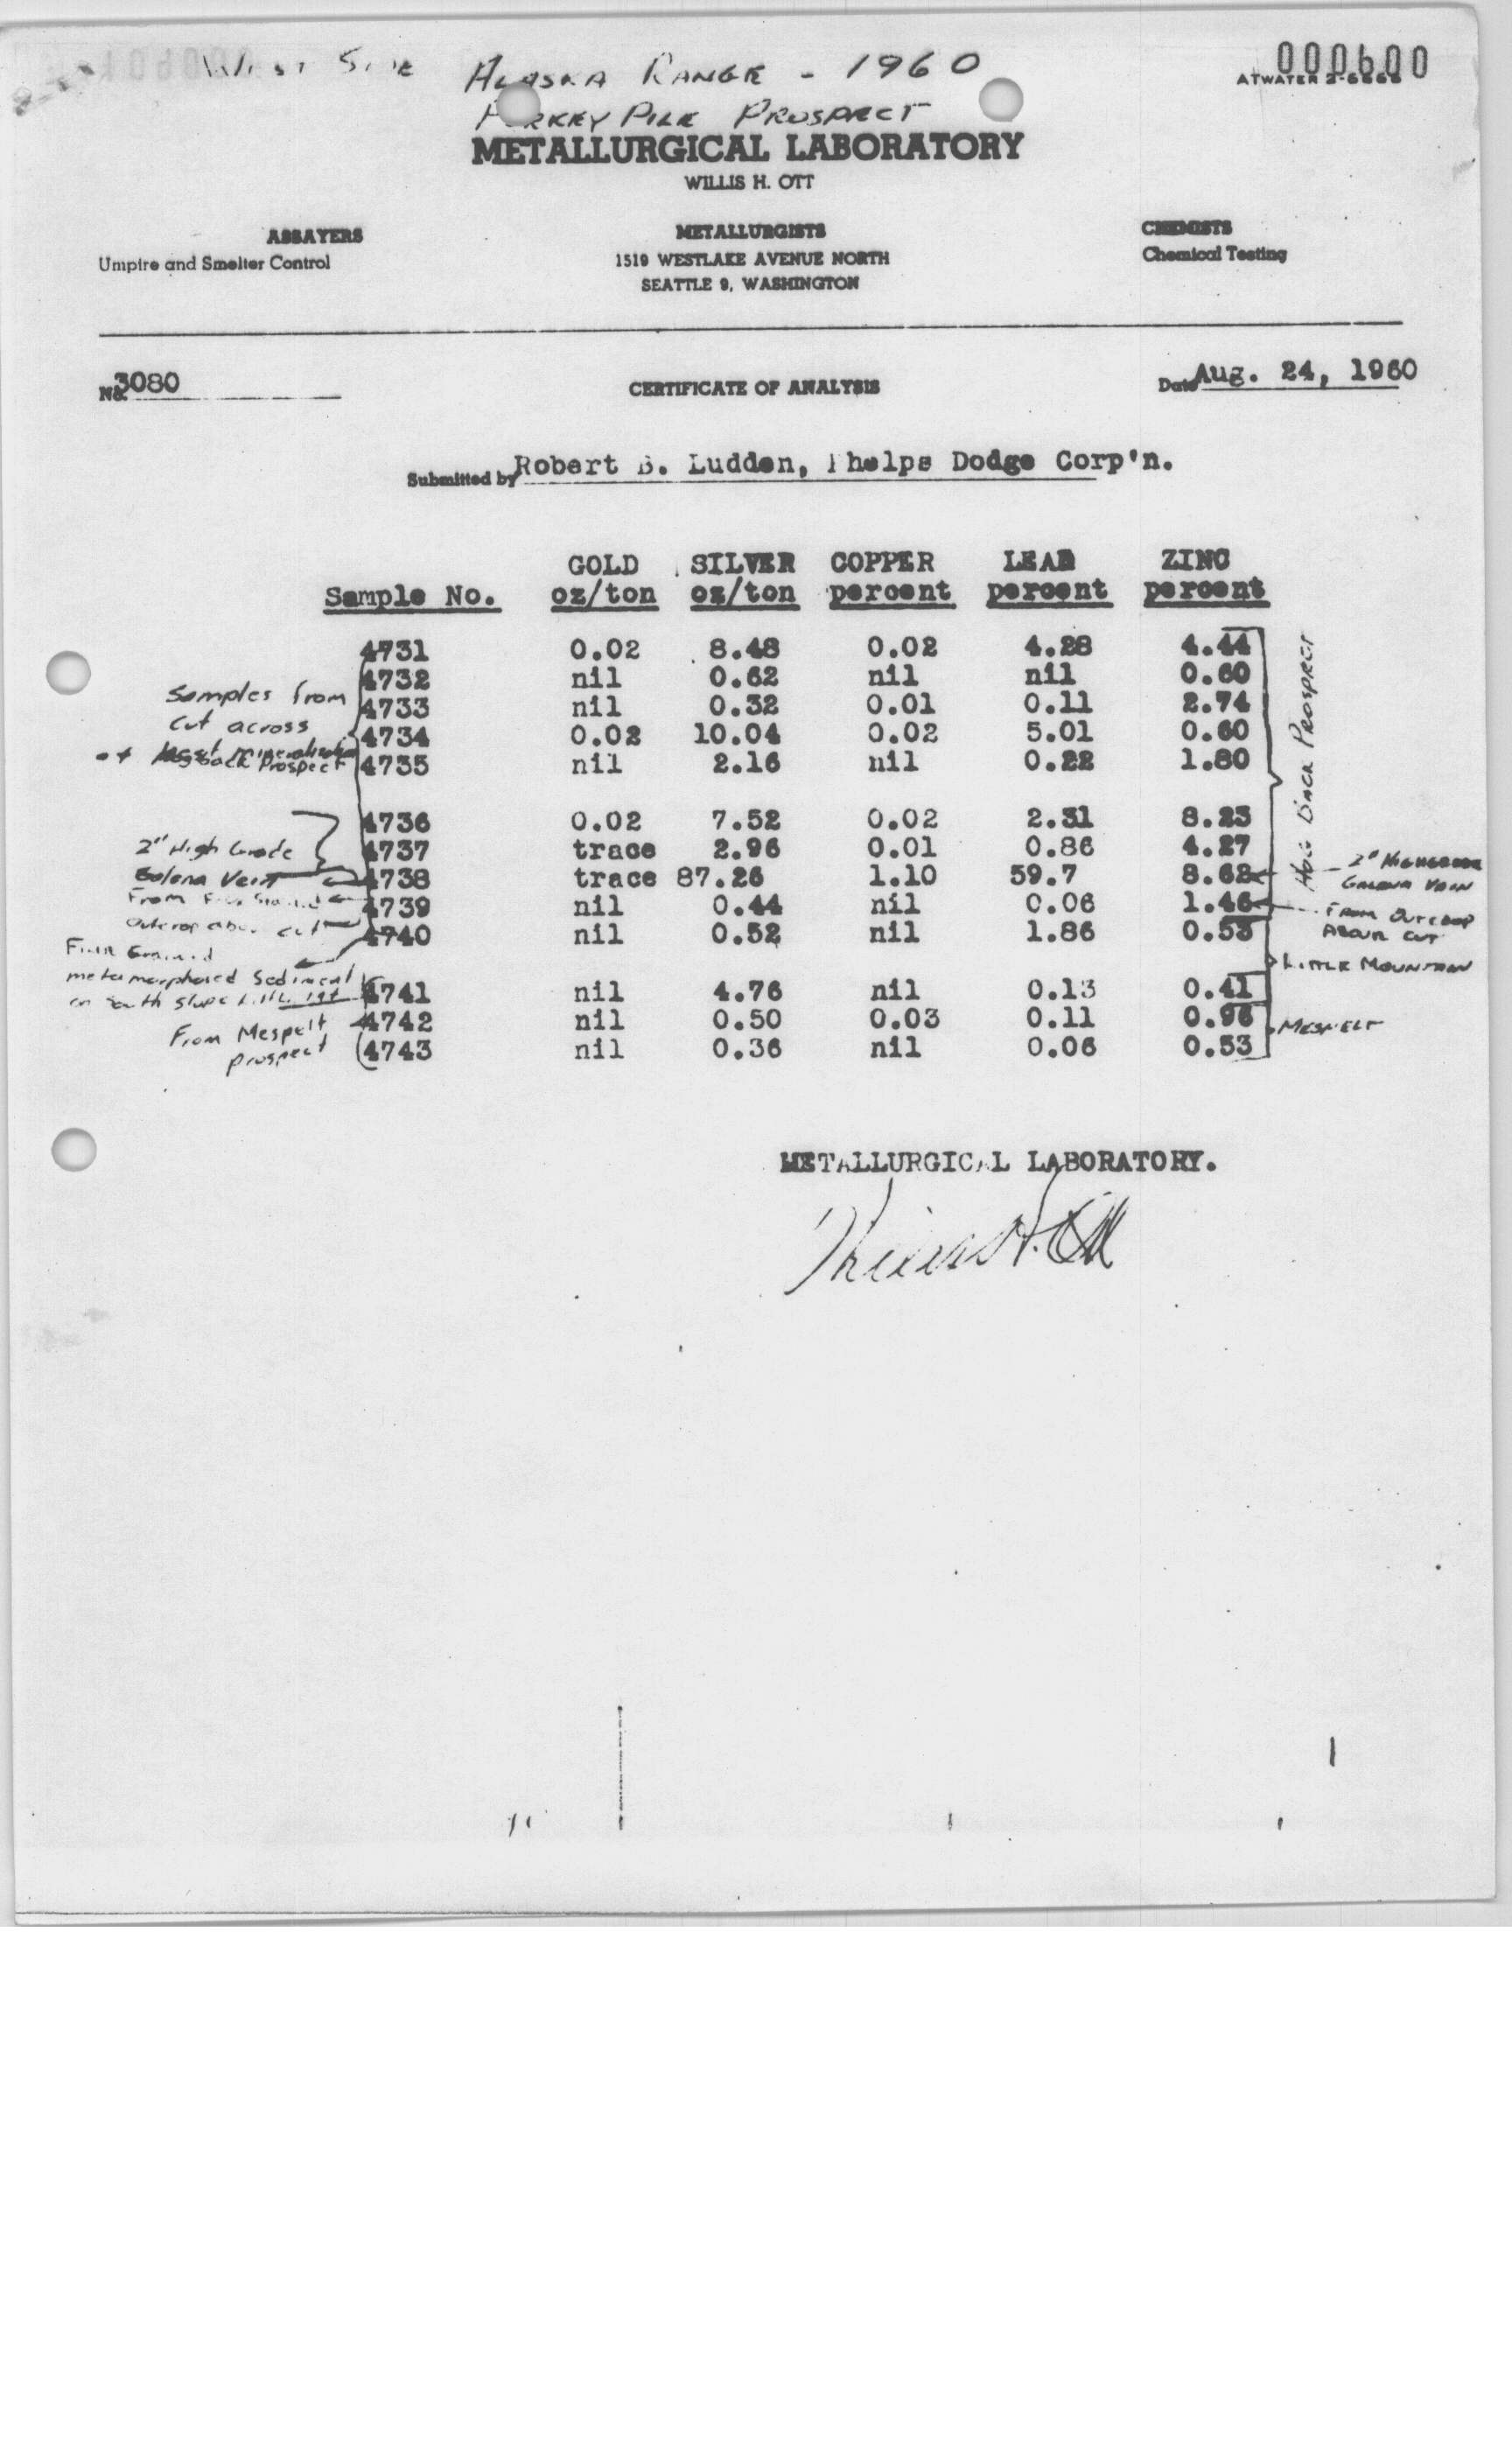 West Side Alaska Range - 1960
000600
ATWATER
Pile Prospect
METALLURGICAL LABORATORY
WILLIS H. OTT
ASSAYERS METALLURGISTS CHEMISTS
Umpire and Smelter Control 1519 WESTLAKE AVENUE NORTH Chemical Testing
SEATTLE 9, WASHINGTON
No. 3080 CERTIFICATE OF ANALYSIS Date Aug. 24, 1960
Submitted by Robert B. Ludden, Phelps Dodge Corp'n.
GOLD SILVER COPPER LEAD ZINC
Sample No. oz/ton oz/ton percent percent percent
4731 0.02 8.48 0.02 4.28 4.44
4732 nil 0.62 nil nil 0.60
4733 nil 0.32 0.01 0.11 2.74
4734 0.02 10.04 0.02 5.01 0.60
4735 nil 2.16 nil 0.22 1.80
4736 0.02 7.52 0.02 2.31 8.23
4737 trace 2.96 0.01 0.86 4.27
4738 trace 87.26 1.10 59.7 8.62
4739 nil 0.44 nil 0.06 1.46
4740 nil 0.52 nil 1.86 0.53
4741 nil 4.76 nil 0.13 0.41
4742 nil 0.50 0.03 0.11 0.96
4743 nil 0.36 nil 0.06 0.53
Samples from
cut across
Prospect
2" High Grade
Galena Vein
From
outcrop cut
Fine Grained
metamorphosed Sediment
on South Slope
From Mespelt
prospect
Hog Back Prospect
2" Highgrade
Galena Vein
From Outcrop
Above Cut
Little Mountain
Mespelt
METALLURGICAL LABORATORY.
Willis H. Ott